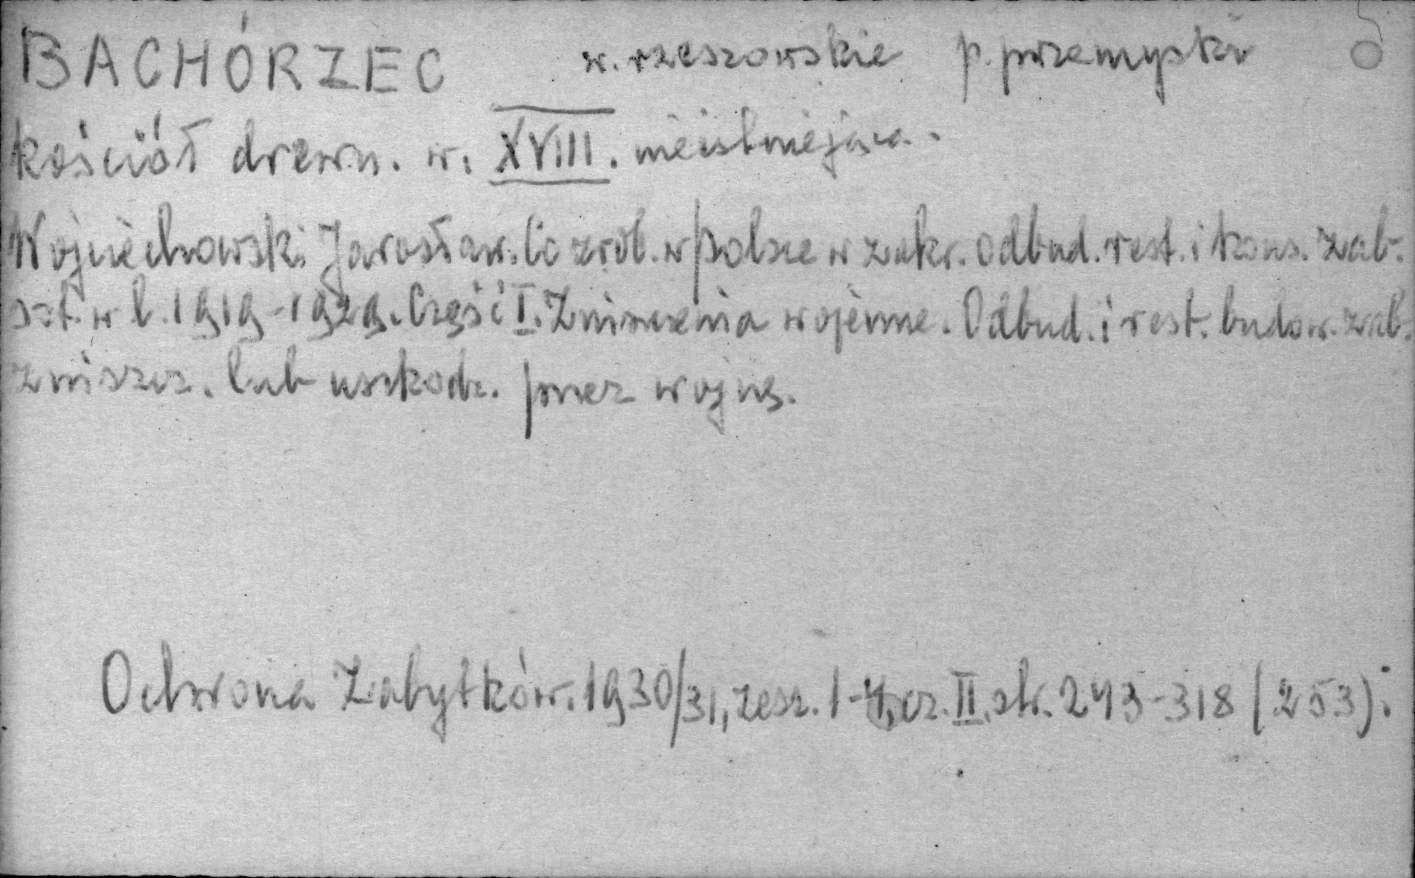 BACHÓRZEC w. rzeszowskie p. przemyski
kościół drewn. w. XVIII. nieistniejąca.
Wojciechowski Jarosław. Co zrob. w Polsce w zakr. odbud. rest. i kons. zab.
szt. w l. 1919-1929. Część I. Zniszczenia wojenne. Odbud. i rest. budow. zab.
zniszcz. lub uszkodz. przez wojnę.
Ochrona Zabytków. 1930/31, zesz. 1-4, cz. II, str. 243-318 (253).